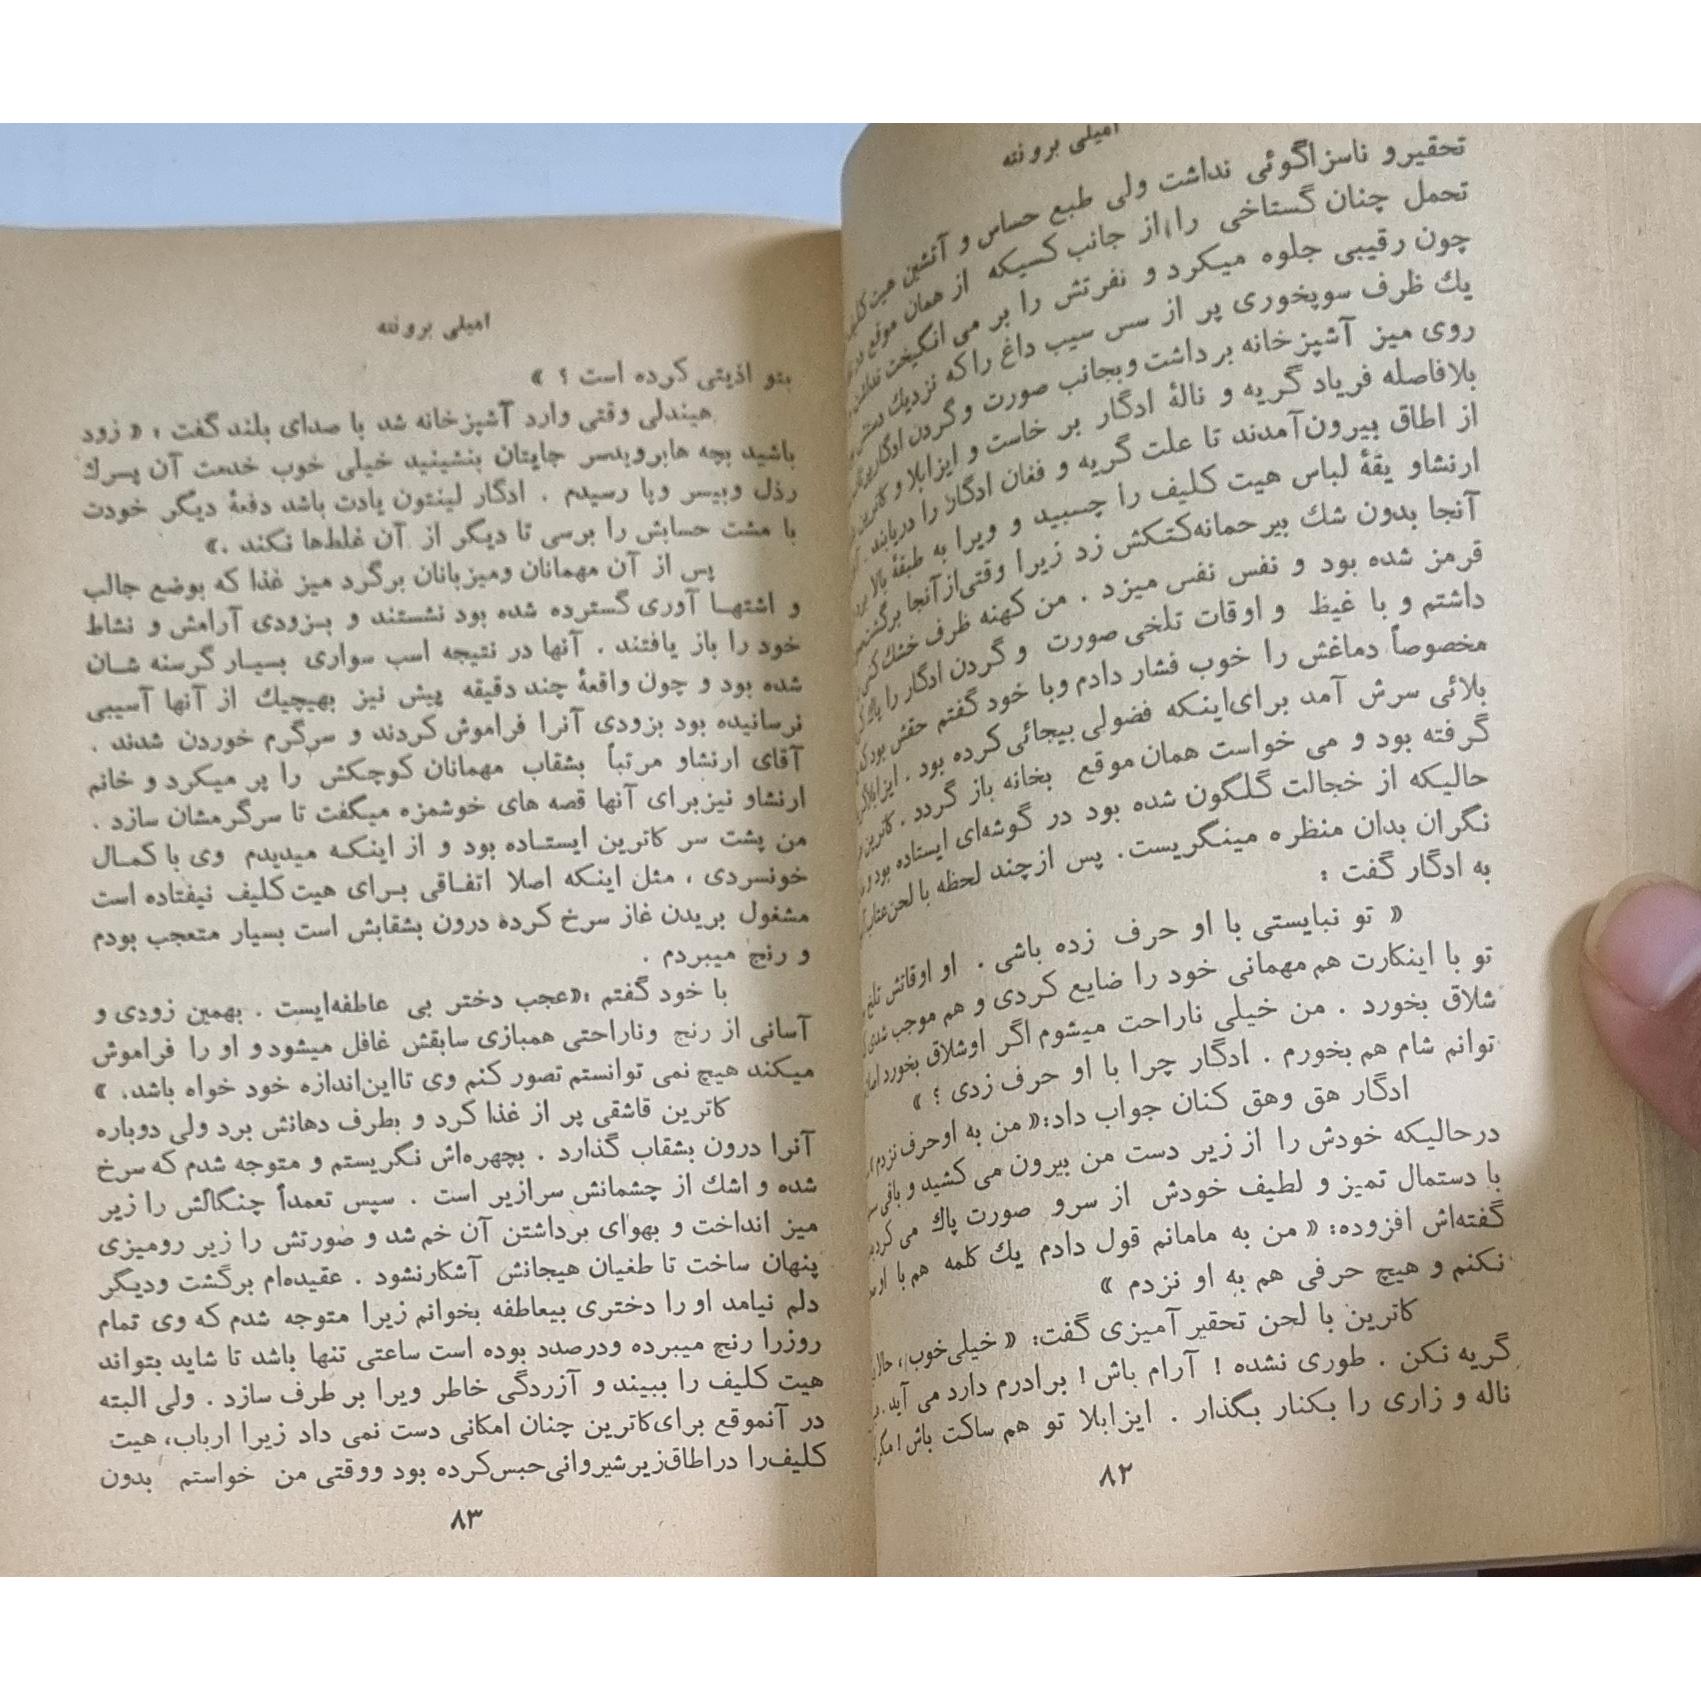 امیلی برونته
تحقیر و ناسزاگوئی نداشت ولی طبع حساس و آتشین هیت کلیف
تحمل چنان گستاخی را از جانب کسیکه از همان موقع
چون رقیبی جلوه میکرد و نفرتش را بر می انگیخت
یك ظرف سوپخوری پر از سس سیب داغ را که نزدیك دستش
روی میز آشپزخانه برداشت و بجانب صورت و گردن ادگار
بلافاصله فریاد گریه و نالهٔ ادگار بر خاست و ایزابلا و کاترین
از اطاق بیرون آمدند تا علت گریه و فغان ادگار را دریابند .
ارنشاو یقهٔ لباس هیت کلیف را چسبید و ویرا به طبقهٔ بالا برد
آنجا بدون شك بیرحمانه کتکش زد زیرا وقتی از آنجا برگشت
قرمز شده بود و نفس نفس میزد . من کهنه ظرف خشك کنی
داشتم و با غیظ و اوقات تلخی صورت و گردن ادگار را پاك
مخصوصاً دماغش را خوب فشار دادم و با خود گفتم حقش بود که
بلائی سرش آمد برای اینکه فضولی بیجائی کرده بود . ایزابلا
گرفته بود و می خواست همان موقع بخانه باز گردد . کاترین
حالیکه از خجالت گلگون شده بود در گوشه‌ای ایستاده بود و
نگران بدان منظره مینگریست. پس از چند لحظه با لحن
به ادگار گفت :
« تو نبایستی با او حرف زده باشی . او اوقاتش تلخ
تو با اینکارت هم مهمانی خود را ضایع کردی و هم موجب شدی
شلاق بخورد . من خیلی ناراحت میشوم اگر او شلاق بخورد
توانم شام هم بخورم . ادگار چرا با او حرف زدی ؟ »
ادگار هق وهق کنان جواب داد:« من به او حرف نزدم
درحالیکه خودش را از زیر دست من بیرون می کشید و
با دستمال تمیز و لطیف خودش از سرو صورت پاك می کرد
گفته‌اش افزوده: « من به مامانم قول دادم یك کلمه هم با او
نکنم و هیچ حرفی هم به او نزدم »
کاترین با لحن تحقیر آمیزی گفت: « خیلی خوب،
گریه نکن . طوری نشده ! آرام باش ! برادرم دارد می آید.
ناله و زاری را بکنار بگذار . ایزابلا تو هم ساکت باش !
۸۲
امیلی برونته
بتو اذیتی کرده است ؟ »
هیندلی وقتی وارد آشپزخانه شد با صدای بلند گفت : « زود
باشید بچه ها برو بدسر جایتان بنشینید خیلی خوب خدمت آن پسرك
رذل و بیسر وپا رسیدم . ادگار لینتون یادت باشد دفعهٔ دیگر خودت
با مشت حسابش را برسی تا دیگر از آن غلط‌ها نکند .»
پس از آن مهمانان ومیزبانان برگرد میز غذا که بوضع جالب
و اشتهـا آوری گسترده شده بود نشستند و بـزودی آرامش و نشاط
خود را باز یافتند . آنها در نتیجه اسب سواری بسیـار گرسنه شـان
شده بود و چون واقعهٔ چند دقیقه پیش نیز بهیچیك از آنها آسیبی
نرسانیده بود بزودی آنرا فراموش کردند و سرگرم خوردن شدند .
آقای ارنشاو مرتباً بشقاب مهمانان کوچکش را پر میکرد و خانم
ارنشاو نیز برای آنها قصه های خوشمزه میگفت تا سرگرمشان سازد .
من پشت سر کاترین ایستـاده بود و از اینکـه میدیدم وی با کمـال
خونسردی ، مثل اینکه اصلا اتفـاقی بـرای هیت کلیف نیفتاده است
مشغول بریدن غاز سرخ کردهٔ درون بشقابش است بسیار متعجب بودم
و رنج میبردم .
با خود گفتم :«عجب دختر بی عاطفه‌ایست . بهمین زودی و
آسانی از رنج وناراحتی همبازی سابقش غافل میشود و او را فراموش
میکند هیچ نمی توانستم تصور کنم وی تااین‌اندازه خود خواه باشد. »
کاترین قاشقی پر از غذا کرد و بطرف دهانش برد ولی دوباره
آنرا درون بشقاب گذارد . بچهره‌اش نگریستم و متوجه شدم که سرخ
شده و اشك از چشمانش سرازیر است . سپس تعمداً چنگالش را زیر
میز انداخت و بهوای برداشتن آن خم شد و صورتش را زیر رومیزی
پنهان ساخت تا طغیان هیجانش آشکارنشود . عقیده‌ام برگشت ودیگر
دلم نیامد او را دختری بیعاطفه بخوانم زیرا متوجه شدم که وی تمام
روزرا رنج میبرده ودرصدد بوده است ساعتی تنها باشد تا شاید بتواند
هیت کلیف را ببیند و آزردگی خاطر ویرا بر طرف سازد . ولی البته
در آنموقع برای کاترین چنان امکانی دست نمی داد زیرا ارباب، هیت
کلیف‌را دراطاق‌زیرشیروانی‌حبس‌کرده بود ووقتی من خواستم بدون
۸۳